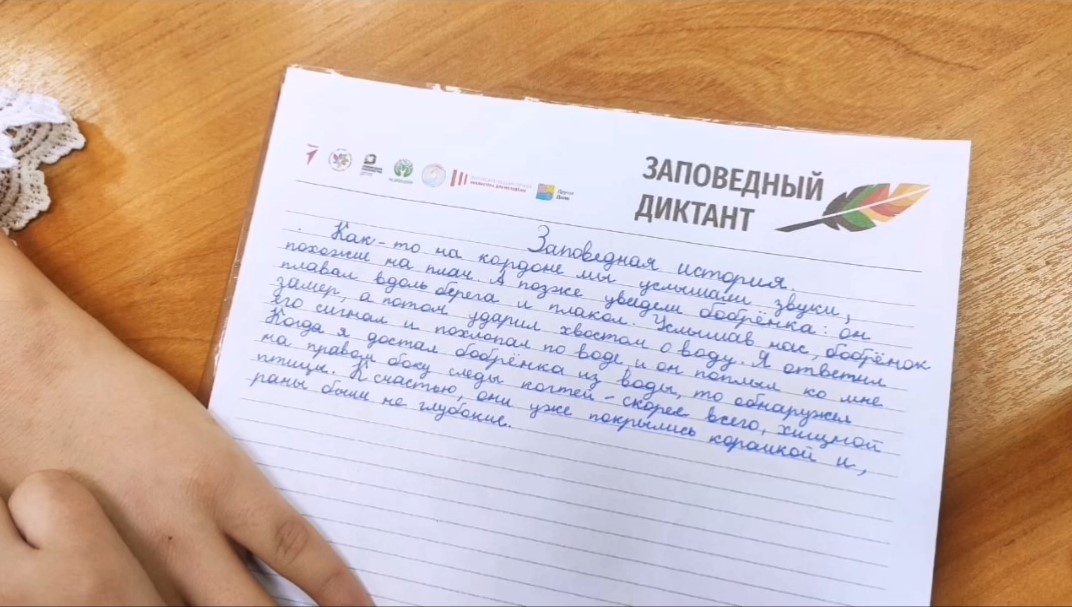 ЗАПОВЕДНЫЙ
ДИКТАНТ
Заповедная история.
Как-то на кордоне мы услышали звуки,
похожие на плач. А позже увидели бобрёнка: он
плавал вдоль берега и плакал. Услышав нас, бобрёнок
замер, а потом ударил хвостом о воду. Я ответил
его сигнал и похлопал по воде и он поплыл ко мне.
Когда я достал бобрёнка из воды, то обнаружил
на правом боку следы когтей - скорее всего, хищной
птицы. К счастью, они уже покрылись коркой и,
раны были не глубокие.